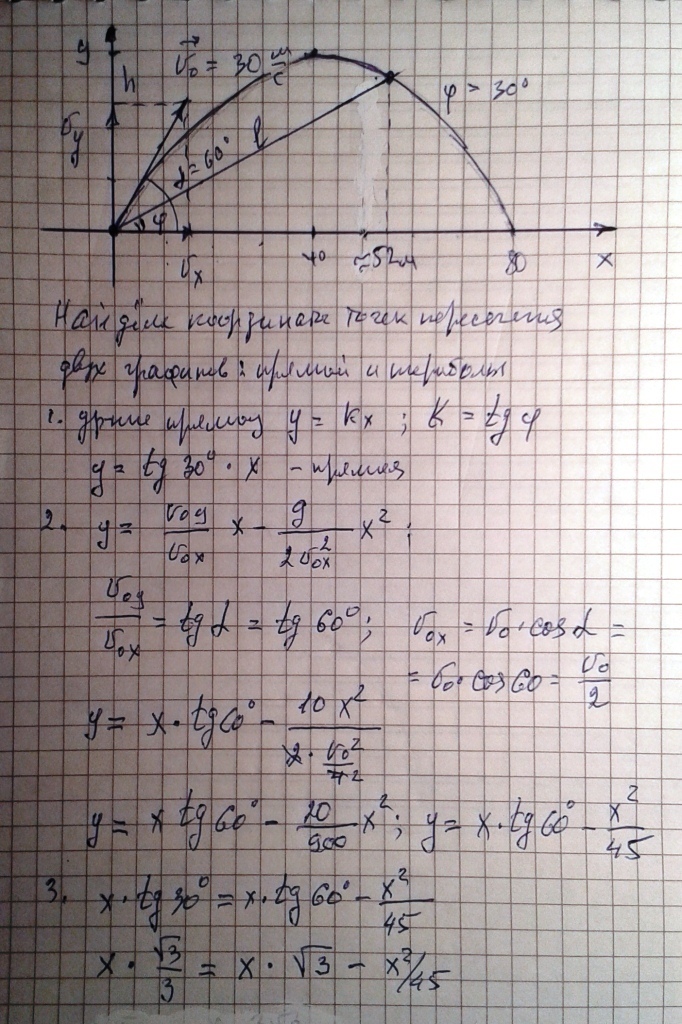 y
h
v⃗₀ = 30 м/с
φ = 30°
v_y
α = 60°
l
φ
v_x
40
≈52м
80
x
Найдём координаты точек пересечения
двух графиков: прямой и
1. прямой y = kx ; k = tg φ
y = tg 30° · x – прямая
2. y = v₀y/v₀x x – g/(2v₀x²) x² ;
v₀y/v₀x = tg α = tg 60° ; v₀x = v₀ · cos α =
= v₀ · cos 60 = v₀/2
y = x · tg 60° – 10 x²/(2 · v₀²/4)
y = x tg 60° – 20/900 x² ; y = x · tg 60° – x²/45
3. x · tg 30° = x · tg 60° – x²/45
x · √3/3 = x · √3 – x²/45